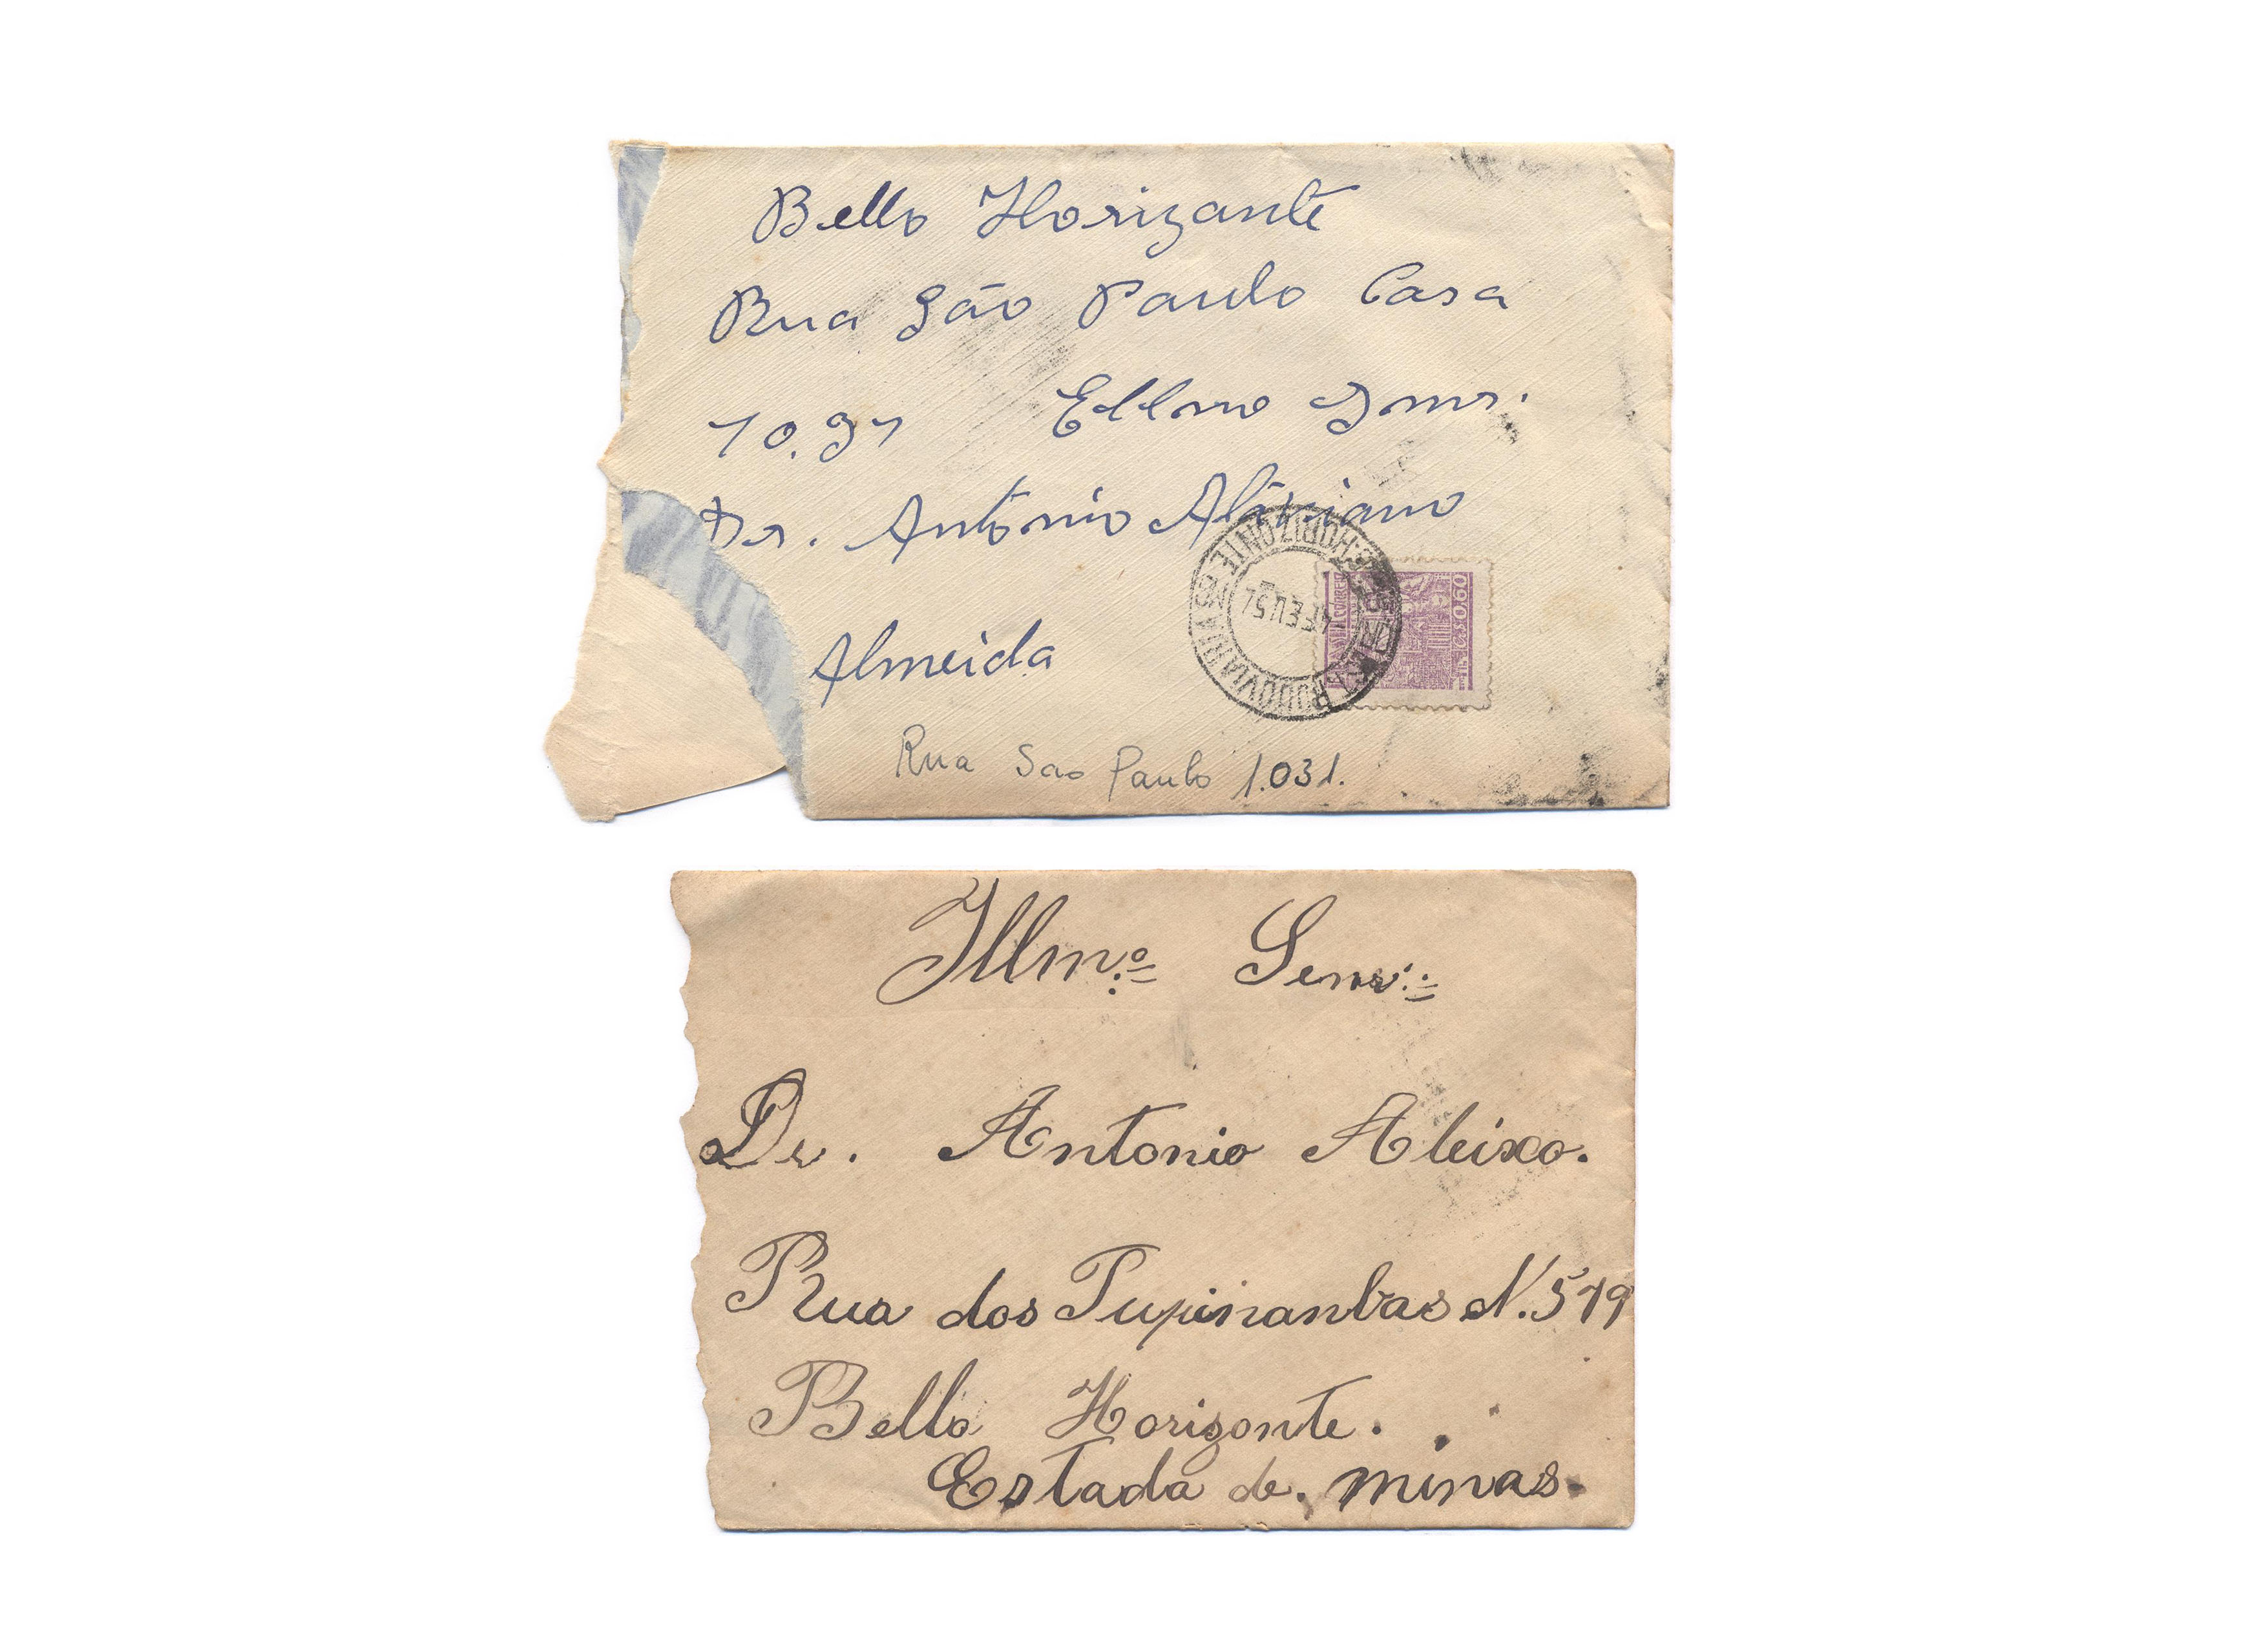 Bello Horizante
Rua São Paulo Casa
10.31
Dr. Antônio
Almeida
B. HORIZONTE
4 FEV 54
Cr$ 0,60
Rua Sao Paulo 1.031.
Illmº Senr.
Dr. Antonio Aleixo.
Rua dos Tupinanbas N. 519
Bello Horizonte.
Estada de. minas.